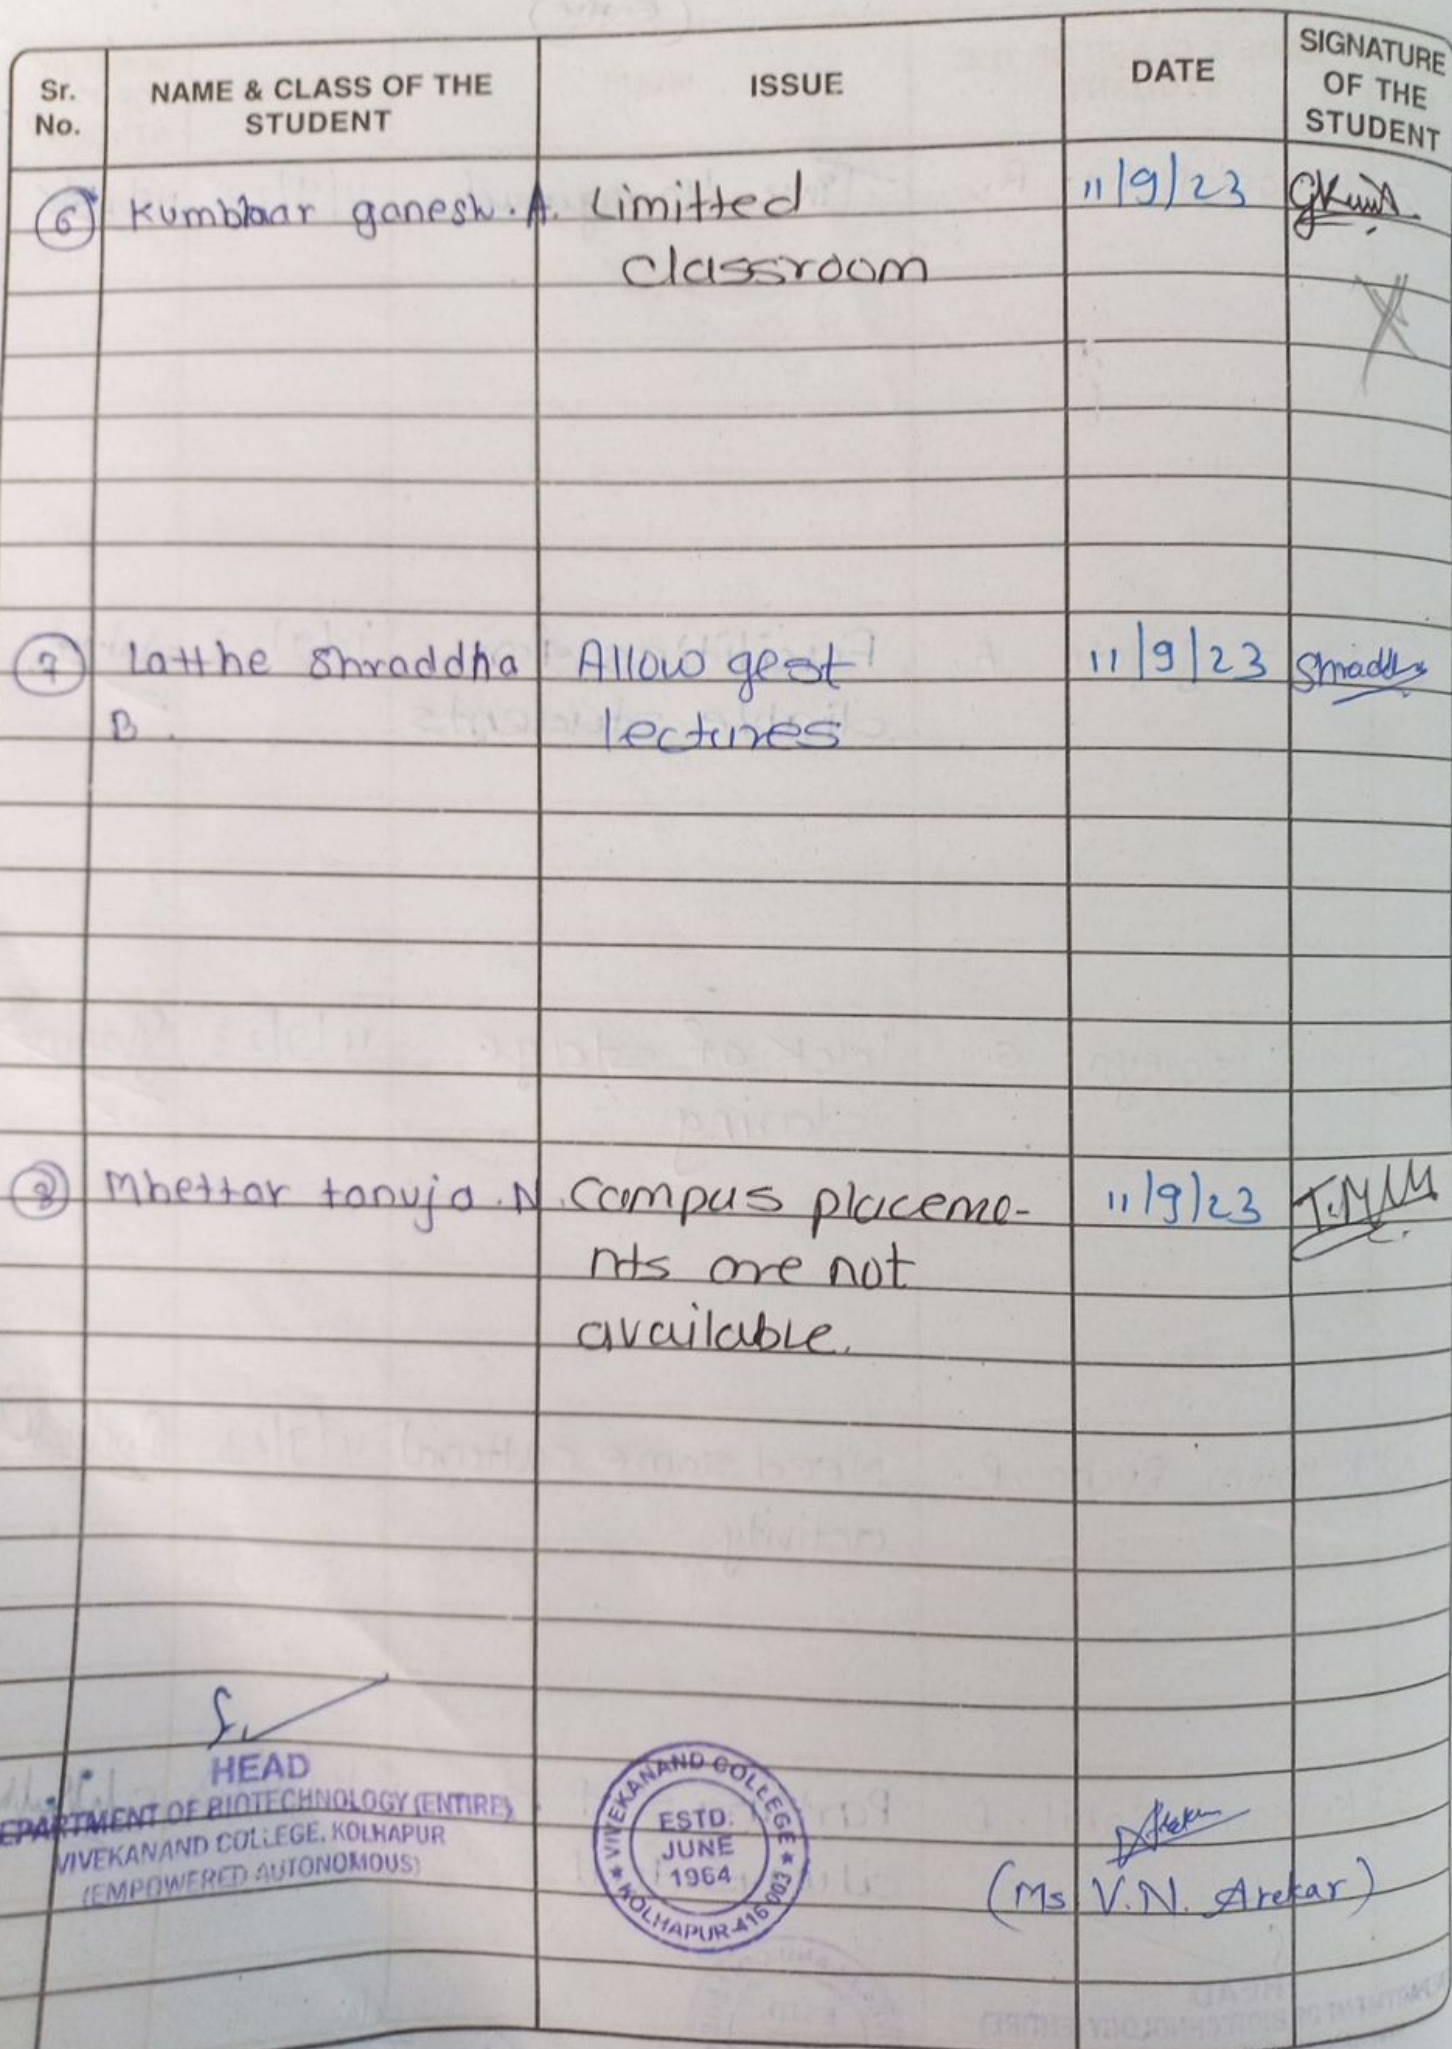 Sr. No. NAME & CLASS OF THE STUDENT ISSUE DATE SIGNATURE OF THE STUDENT
6 Kumbhar ganesh. A. Limitted 11/9/23
classroom
7 Latthe Shraddha Allow gest 11/9/23 Shraddha
B. lectures
8 Mhettar tanuja. N. Campus placeme- 11/9/23
nts are not
available.
HEAD
EPARTMENT OF BIOTECHNOLOGY (ENTIRE)
VIVEKANAND COLLEGE, KOLHAPUR
(EMPOWERED AUTONOMOUS)
VIVEKANAND COLLEGE
ESTD.
JUNE
1964
KOLHAPUR-416 003
(Ms V.N. Arekar)